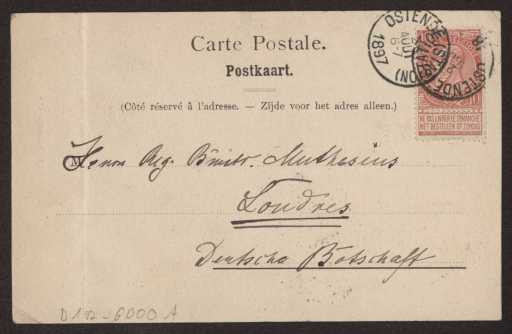 Carte Postale.
Postkaart.
(Côté réservé à l'adresse. — Zijde voor het adres alleen.)
OSTENDE (STATION)
AOÛ
6-7
1897
OSTENDE
NE PAS LIVRER LE DIMANCHE
NIET BESTELLEN OP ZONDAG
M
Herrn Reg. Bmstr. Muthesius
Londres
Deutsche Botschaft
D 102-6000 A